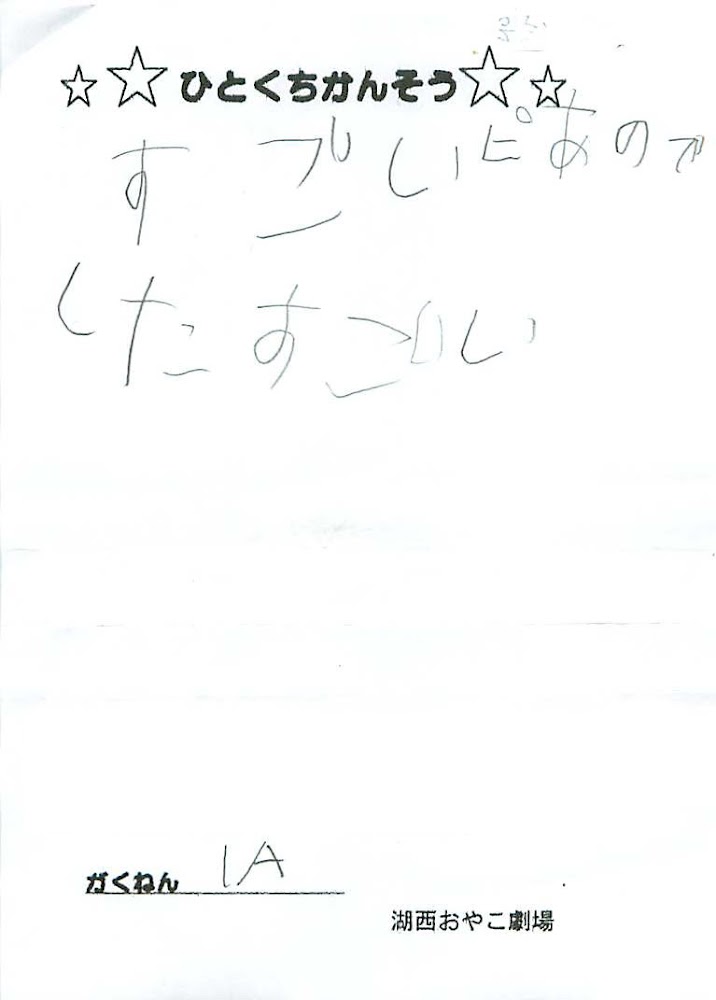 ☆☆ひとくちかんそう☆☆
すごいピあので
したすごい
がくねん 1A
湖西おやこ劇場